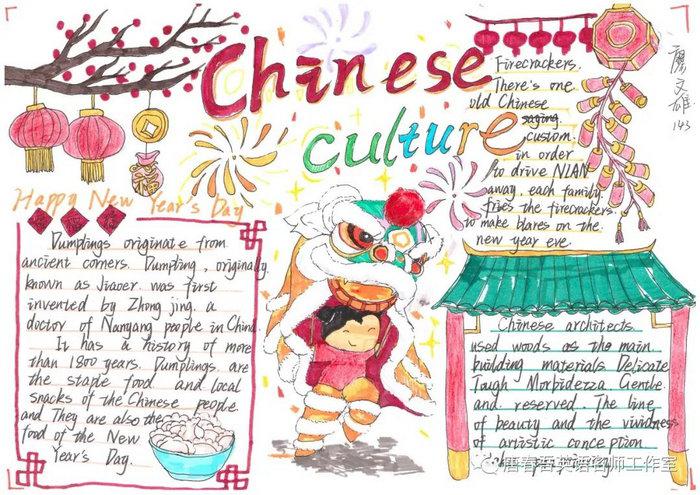 Chinese
culture
Happy New Year's Day
福
Dumplings originate from
ancient corners. Dumpling, originally
known as Jiaoer. was first
invented by Zhong jing. a
doctor of Nanyang people in China.
It has a history of more
than 1800 years. Dumplings. are
the staple food and local
snacks of the Chinese people.
and They are also the
food of the New
Year's Day.
Firecrackers.
There's one
old Chinese
saying
custom.
in order
to drive NIAN
away. each family
fries the firecrackers.
to make blares on the
new year eve.
廖文雄
143
Chinese architects
used woods as the main
building materials. Delicate
Tough Morbidezza. Gentle
and reserved. The line
of beauty and the vividness
of artistic conception
唐春吾英语名师工作室